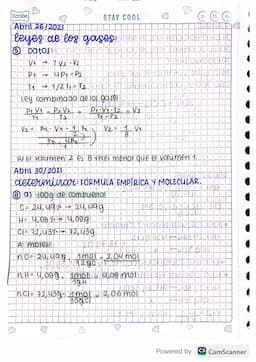 Scribe
STAY COOL
Abril 26/2021
leyes de los gases:
⑤ Datos:
V1 → ? V2 - P2
P1 → 4P1 = P2
T1 → 1/2 T1 = T2
ley combinada de los gases
P1·V1 / T1 = P2·V2 / T2 = P1·V1·T2 / T1·P2 = V2
V2 = 1/8 V1
R// El volumen 2 es 8 veces menor que el volumen 1.
Abril 30/2021
determinar: FÓRMULA EMPÍRICA Y MOLECULAR.
⑧ a) 100g de compuesto
C= 24,49% → 24,49g
H= 4,08% → 4,08g
Cl= 72,43% → 72,43g
A moles:
nC= 24,49g · 1mol / 12gC = 2,04 mol
nH= 4,08g · 1mol / 1gH = 4,08 mol
nCl= 72,43g · 1mol / 35gCl = 2,06 mol
Powered by CS CamScanner